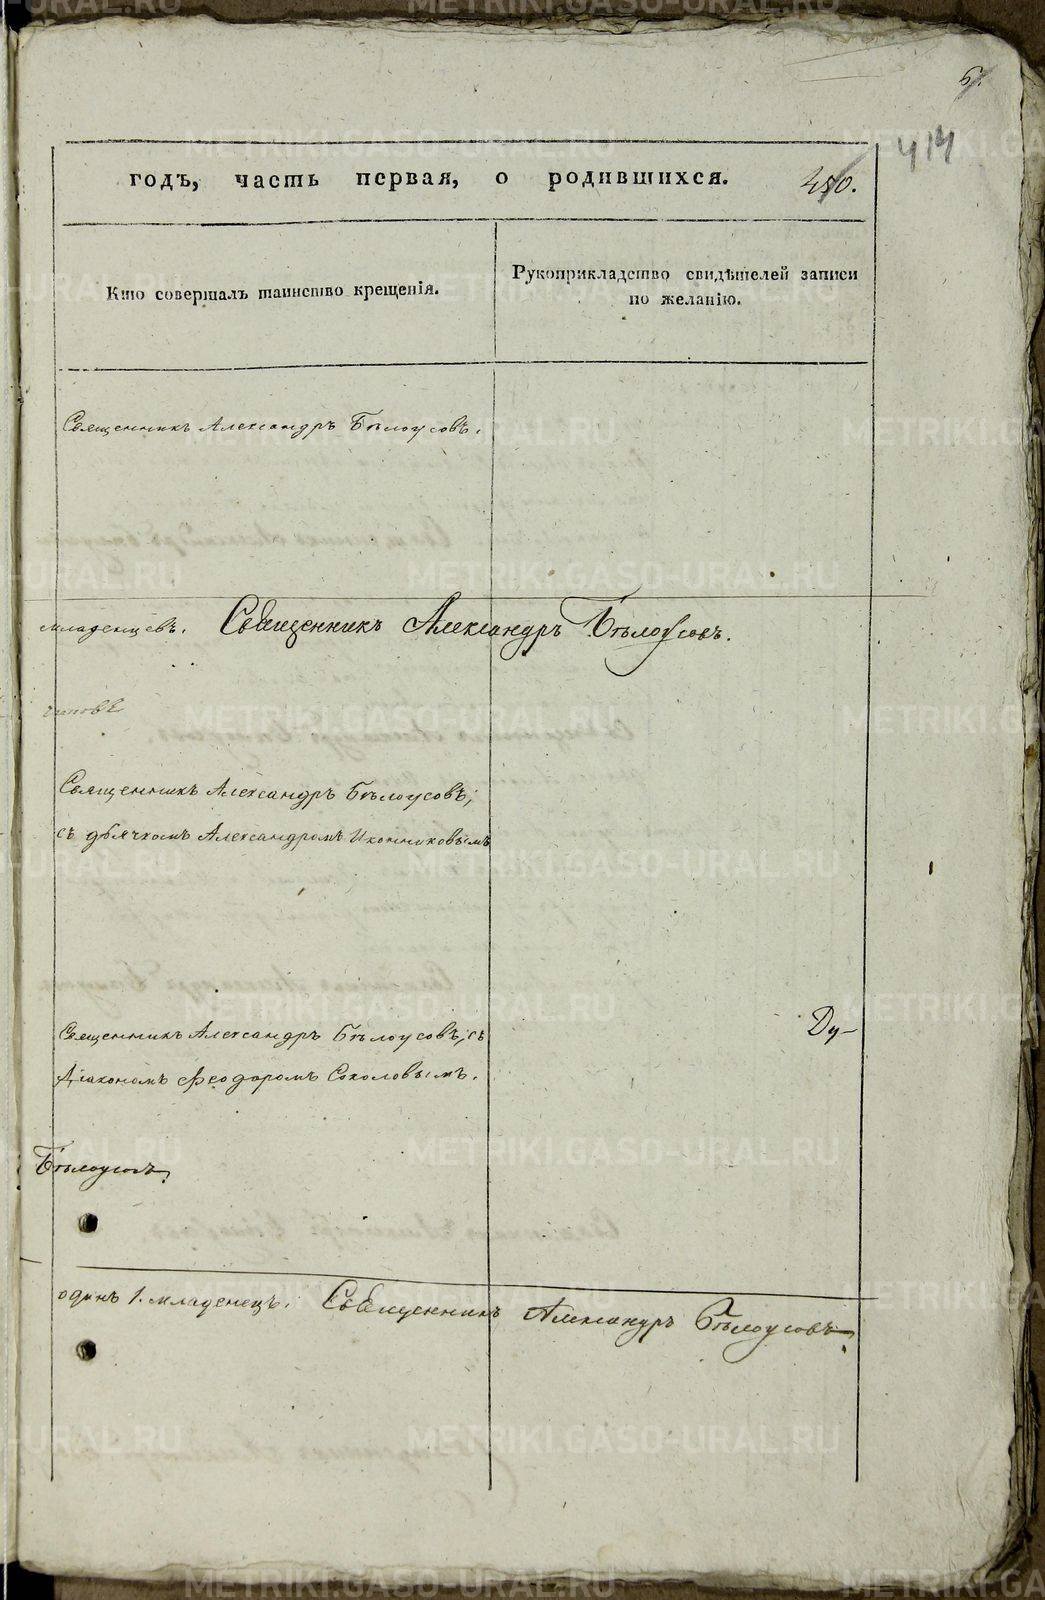 6.
414
годъ, часть первая, о родившихся. 450.
Кто совершалъ таинство крещенія.
Рукоприкладство свидѣтелей записи
по желанію.
Священникъ Александръ Бѣлоусовъ.
младенцевъ. Священникъ Александръ Бѣлоусовъ.
Священникъ Александръ Бѣлоусовъ,
съ дьячкомъ Александромъ Иконниковымъ
Священникъ Александръ Бѣлоусовъ, съ
Діакономъ Феодоромъ Соколовымъ.
Ду-
Бѣлоусовъ,
одинъ 1. младенецъ. Священникъ Александръ Бѣлоусовъ,
METRIKI.GASO-URAL.RU